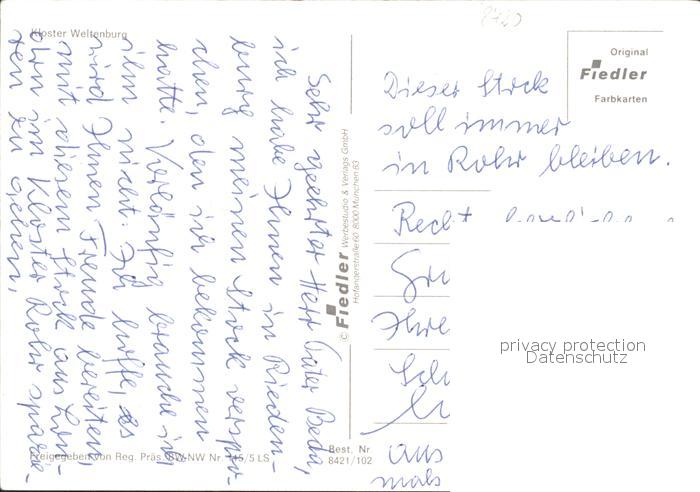 Kloster Weltenburg
Sehr geehrter Herr Pater Beda,
ich habe Ihnen in Rieden-
burg meinen Stock verspro-
chen, den ich bekommen
hatte. Vorläufig brauche ich
ihn nicht. Ich hoffe, es
wird Ihnen Freude bereiten,
mit diesem Stock aus
dem im Kloster Rohr spazie-
ren zu gehen,
Dieser Stock
soll immer
in Rohr bleiben.
Recht
Ihre
aus
mals
Original
Fiedler
Farbkarten
© Fiedler Werbestudio & Verlags GmbH
Hofangerstraße 60 8000 München 83
Freigegeben von Reg. Präs. BW-NW Nr. 145/5 LS
Best. Nr
8421/102
privacy protection
Datenschutz